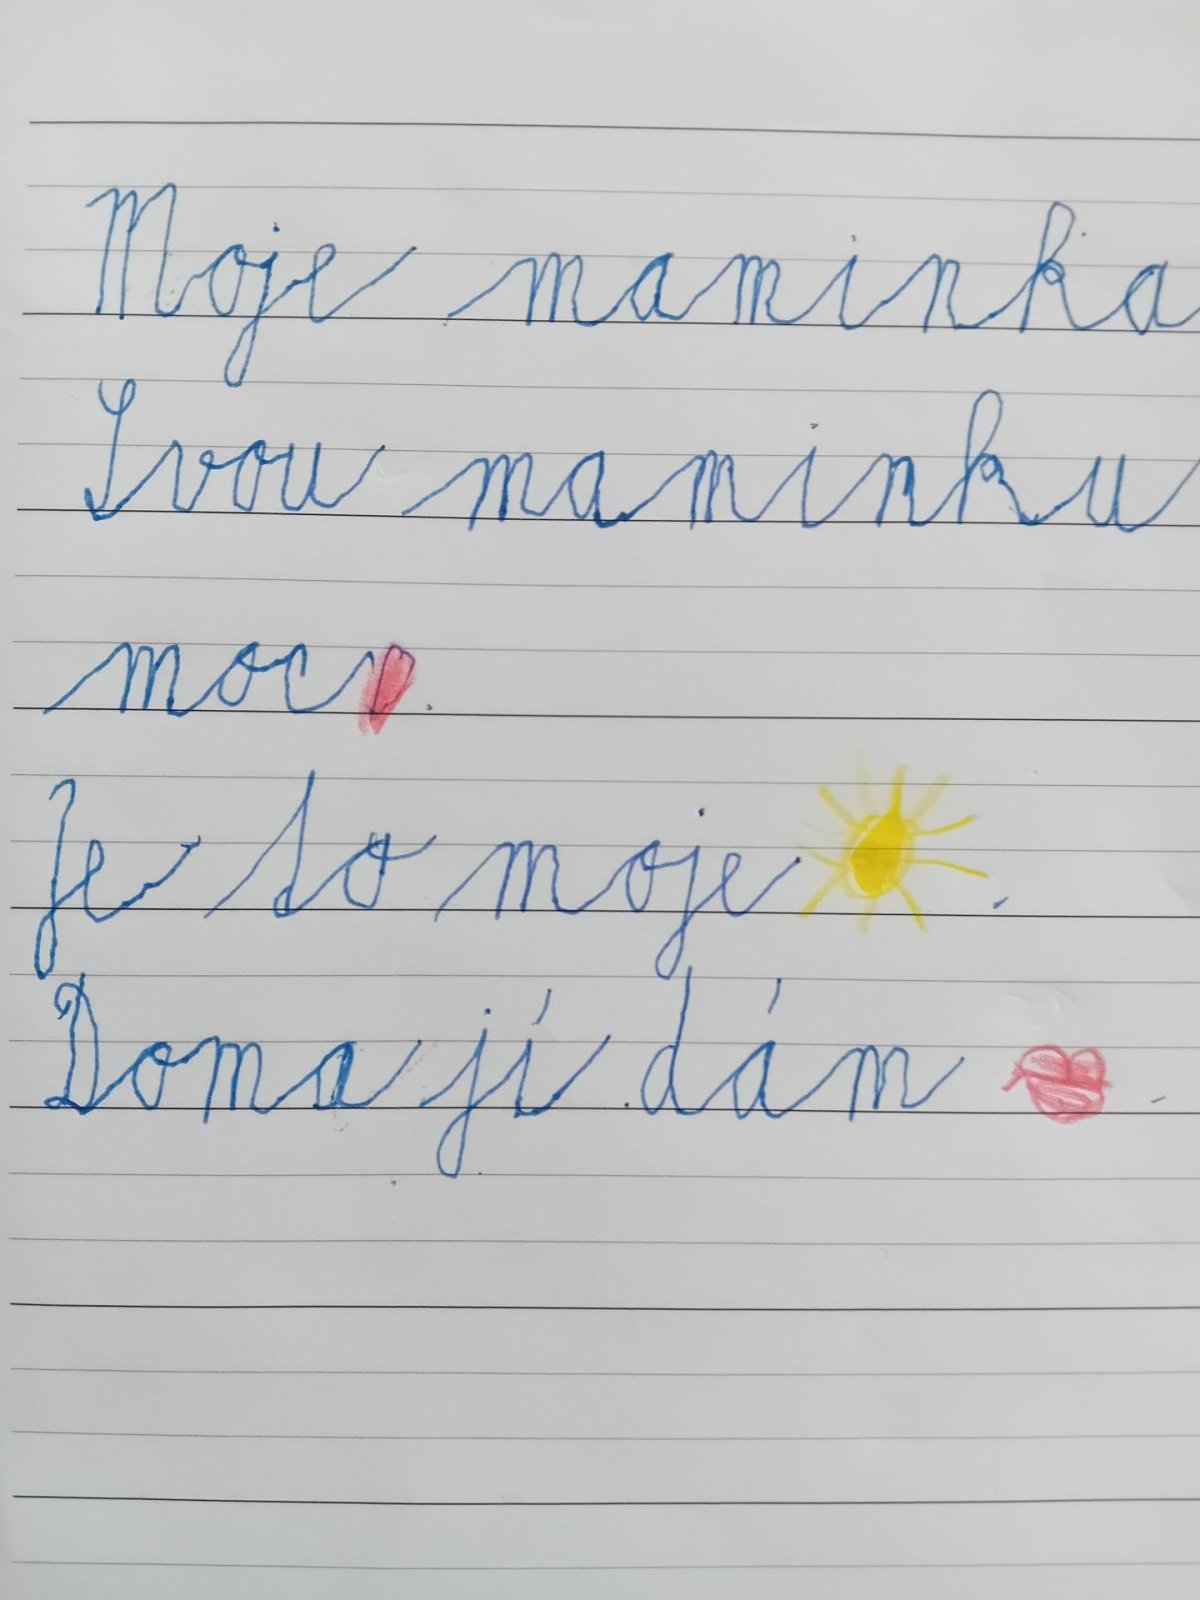 Moje maminka
Svou maminku
moc .
Je to moje .
Doma jí dám .